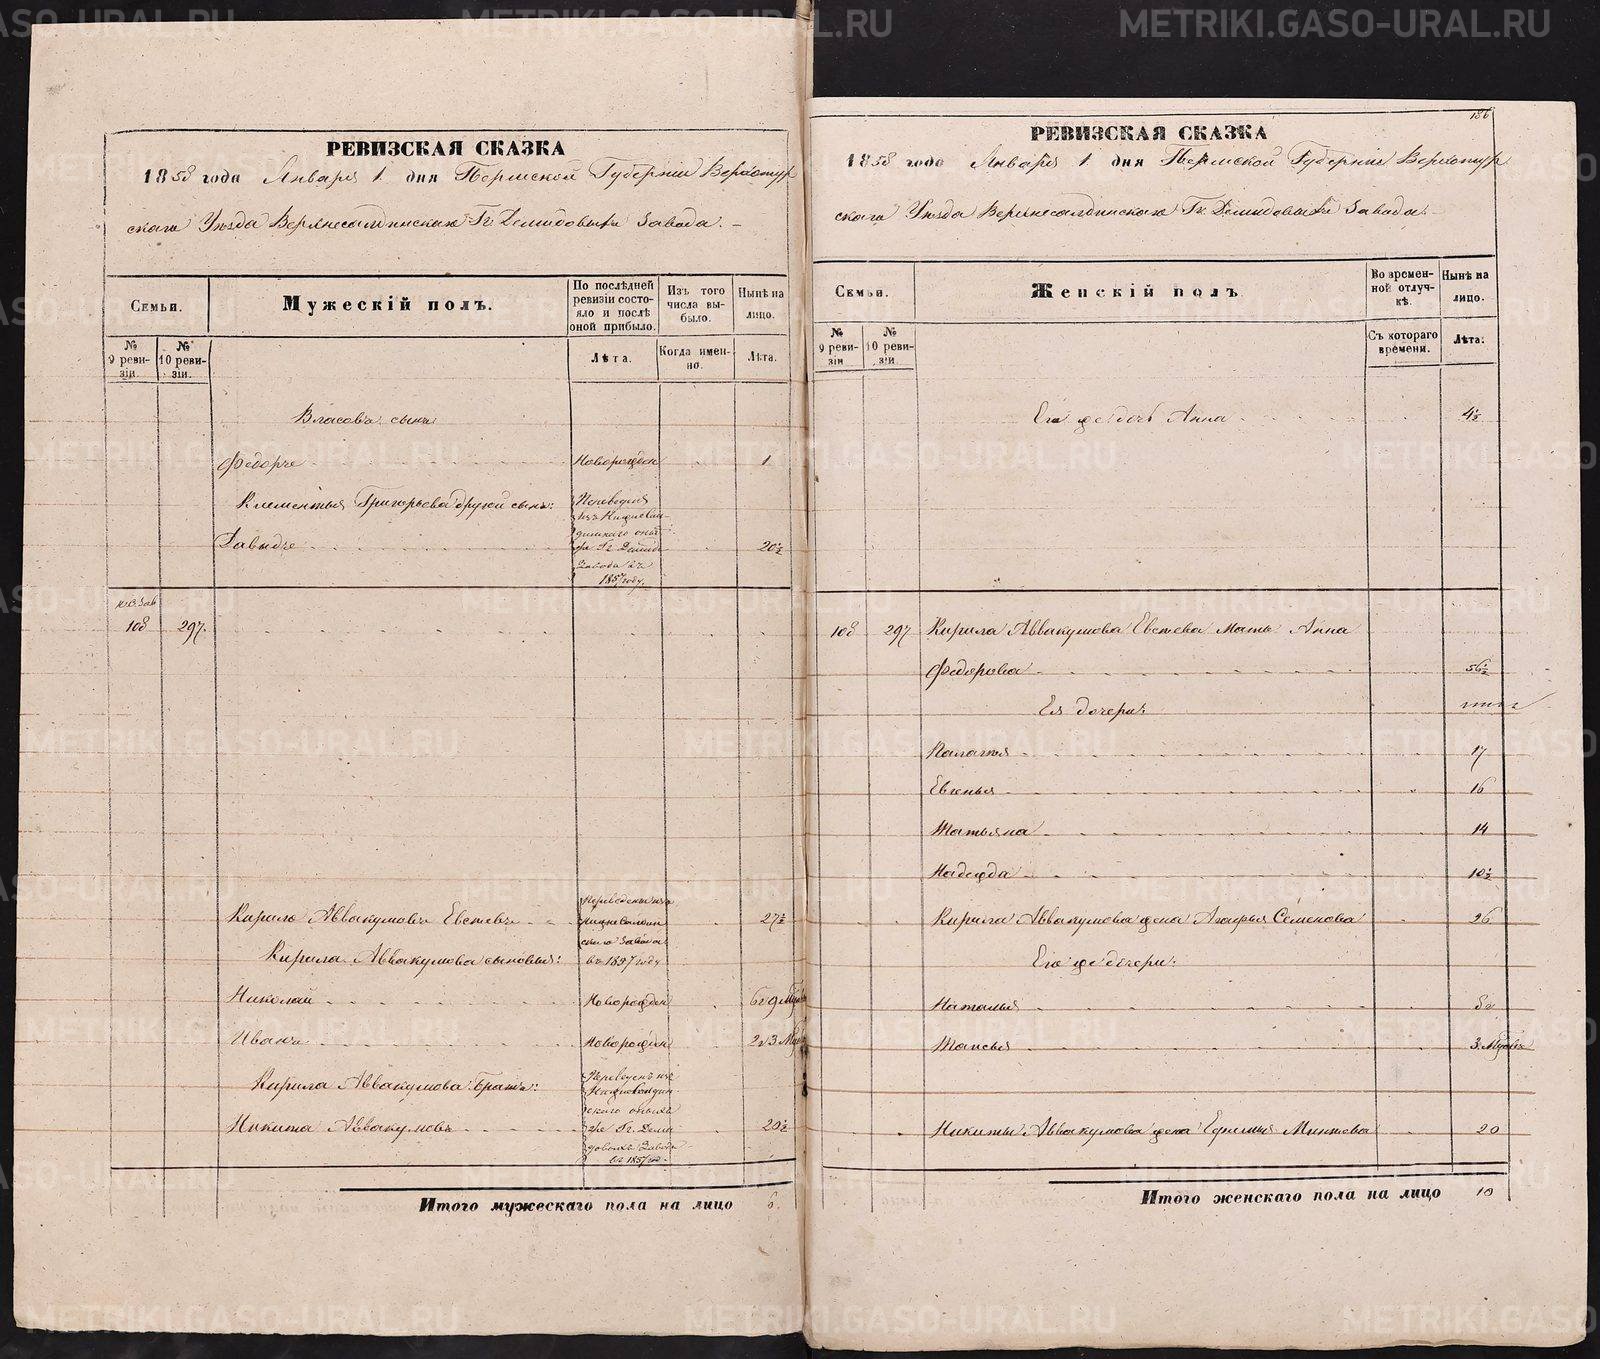 РЕВИЗСКАЯ СКАЗКА
1858 года Января 1 дня Пермской Губернии Верхотур
скаго Уѣзда Верхнесалдинскаго Гг. Демидовыхъ Завода.
Семьи.
Мужескій полъ.
По послѣдней ревизіи состояло и послѣ оной прибыло.
Изъ того числа выбыло.
Нынѣ на лицо.
№ 9 ревизіи.
№ 10 ревизіи.
Лѣта.
Когда именно.
Лѣта.
Власовъ сынъ
Федоръ Новорожден 1
Клементья Григорьева другой сынъ:
Давыдъ 20½
Переведен
изъ Нижнесалдинскаго
Гг. Демид
Завода въ
1857 году.
108 297.
Кирило Аввакумовъ Евсеевъ 27½
Переведенъ изъ
Нижнесалдин
скаго Завода
въ 1857 году
Кирила Аввакумова сыновья:
Николай Новорожден 6 и 9 М
Иванъ Новорожден 2 и 3 М
Кирила Аввакумова братъ:
Никита Аввакумовъ 20½
Переведенъ изъ
Нижнесалдин
скаго
Гг. Деми
довыхъ Завода
въ 1857 год.
Итого мужескаго пола на лицо 6.
186
РЕВИЗСКАЯ СКАЗКА
1858 года Января 1 дня Пермской Губерніи Верхотур
скаго Уѣзда Верхнесалдинскаго Гг. Демидовыхъ Завода.
Семьи.
Женскій полъ.
Во временной отлучкѣ.
Нынѣ на лицо.
№ 9 ревизіи
№ 10 ревизіи.
Съ котораго времени.
Лѣта:
Его же дочь Анна 4½
108 297 Кирила Аввакумова Евсеева мать Анна
Федорова 56½
Ея дочери:
Палагья 17
Евгенья 16
Татьяна 14
Надежда 10½
Кирила Аввакумова жена Агафья Семенова 26
Его же дочери:
Наталья
Таисья 3
Никиты Аввакумова жена 20
Итого женскаго пола на лицо 10
METRIKI.GASO-URAL.RU